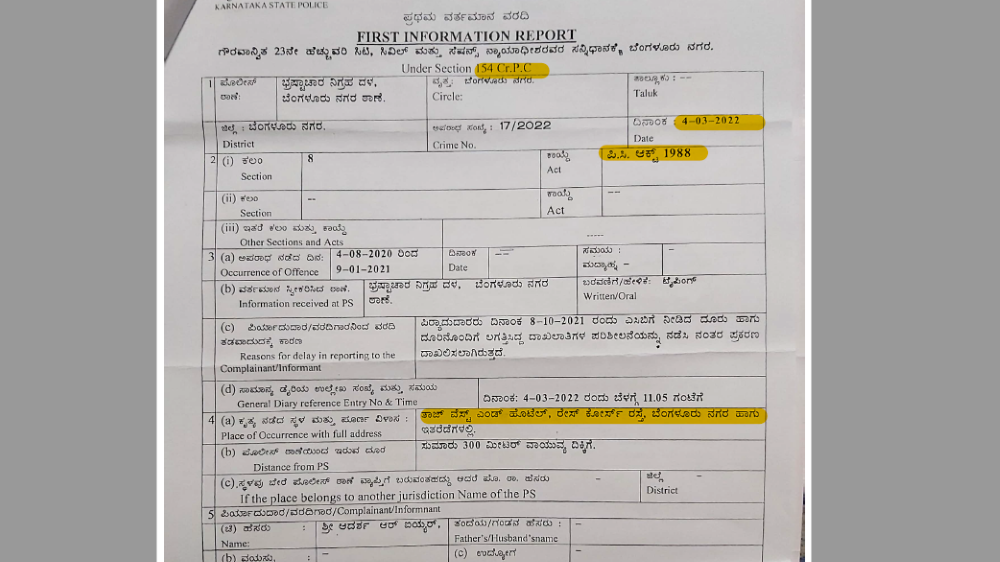 KARNATAKA STATE POLICE
ಪ್ರಥಮ ವರ್ತಮಾನ ವರದಿ
FIRST INFORMATION REPORT
ಗೌರವಾನ್ವಿತ 23ನೇ ಹೆಚ್ಚುವರಿ ಸಿಟಿ, ಸಿವಿಲ್ ಮತ್ತು ಸೆಷನ್ಸ್ ನ್ಯಾಯಾಧೀಶರವರ ಸನ್ನಿಧಾನಕ್ಕೆ ಬೆಂಗಳೂರು ನಗರ.
Under Section 154 Cr.P.C
1 ಪೊಲೀಸ್ ಠಾಣೆ: ಭ್ರಷ್ಟಾಚಾರ ನಿಗ್ರಹ ದಳ, ಬೆಂಗಳೂರು ನಗರ ಠಾಣೆ. ವೃತ್ತ: ಬೆಂಗಳೂರು ನಗರ. Circle: ತಾಲ್ಲೂಕು : -- Taluk
ಜಿಲ್ಲೆ : ಬೆಂಗಳೂರು ನಗರ. ಅಪರಾಧ ಸಂಖ್ಯೆ : 17/2022 ದಿನಾಂಕ : 4-03-2022
District Crime No. Date
2 (i) ಕಲಂ 8 ಕಾಯ್ದೆ ಪಿ.ಸಿ. ಆಕ್ಟ್ 1988
Section Act
(ii) ಕಲಂ -- ಕಾಯ್ದೆ --
Section Act
(iii) ಇತರೆ ಕಲಂ ಮತ್ತು ಕಾಯ್ದೆ -----
Other Sections and Acts
3 (a) ಅಪರಾಧ ನಡೆದ ದಿನ: 4-08-2020 ರಿಂದ ದಿನಾಂಕ -- ಸಮಯ : -
Occurrence of Offence 9-01-2021 Date ಮಧ್ಯಾಹ್ನ -
(b) ವರ್ತಮಾನ ಸ್ವೀಕರಿಸಿದ ಠಾಣೆ. ಭ್ರಷ್ಟಾಚಾರ ನಿಗ್ರಹ ದಳ, ಬೆಂಗಳೂರು ನಗರ ಬರವಣಿಗೆ/ಹೇಳಿಕೆ: ಟೈಪಿಂಗ್
Information received at PS ಠಾಣೆ. Written/Oral
(c) ಪಿರ್ಯಾದುದಾರ/ವರದಿಗಾರನಿಂದ ವರದಿ ಪಿರ್‍ಯಾದುದಾರರು ದಿನಾಂಕ 8-10-2021 ರಂದು ಎಸಿಬಿಗೆ ನೀಡಿದ ದೂರು ಹಾಗು
ತಡವಾದುದಕ್ಕೆ ಕಾರಣ ದೂರಿನೊಂದಿಗೆ ಲಗತ್ತಿಸಿದ್ದ ದಾಖಲಾತಿಗಳ ಪರಿಶೀಲನೆಯನ್ನು ನಡೆಸಿ ನಂತರ ಪ್ರಕರಣ
Reasons for delay in reporting to the ದಾಖಲಿಸಲಾಗಿರುತ್ತದೆ.
Complainant/Informant
(d) ಸಾಮಾನ್ಯ ಡೈರಿಯ ಉಲ್ಲೇಖ ಸಂಖ್ಯೆ ಮತ್ತು ಸಮಯ ದಿನಾಂಕ: 4-03-2022 ರಂದು ಬೆಳಗ್ಗೆ 11.05 ಗಂಟೆಗೆ
General Diary reference Entry No & Time
4 (a) ಕೃತ್ಯ ನಡೆದ ಸ್ಥಳ ಮತ್ತು ಪೂರ್ಣ ವಿಳಾಸ : ತಾಜ್ ವೆಸ್ಟ್ ಎಂಡ್ ಹೊಟೆಲ್, ರೇಸ್ ಕೋರ್ಸ್ ರಸ್ತೆ, ಬೆಂಗಳೂರು ನಗರ ಹಾಗು
Place of Occurrence with full address ಇತರೆಡೆಗಳಲ್ಲಿ.
(b) ಪೊಲೀಸ್ ಠಾಣೆಯಿಂದ ಇರುವ ದೂರ ಸುಮಾರು 300 ಮೀಟರ್ ವಾಯುವ್ಯ ದಿಕ್ಕಿಗೆ.
Distance from PS
(c) ಸ್ಥಳವು ಬೇರೆ ಪೊಲೀಸ್ ಠಾಣೆ ವ್ಯಾಪ್ತಿಗೆ ಬರುವಂತಹದ್ದು ಆದರೆ ಪೊ. ಠಾ. ಹೆಸರು - ಜಿಲ್ಲೆ -
If the place belongs to another jurisdiction Name of the PS District
5 ಪಿರ್ಯಾದುದಾರ/ವರದಿಗಾರ/Complainant/Informnant
(ಚಿ) ಹೆಸರು : ಶ್ರೀ ಆದರ್ಶ ಆರ್ ಐಯ್ಯರ್, ತಂದೆಯ/ಗಂಡನ ಹೆಸರು : -
Name: Father's/Husband'sname
(b) ವಯಸು, : - (c) ಉದ್ಯೋಗ -